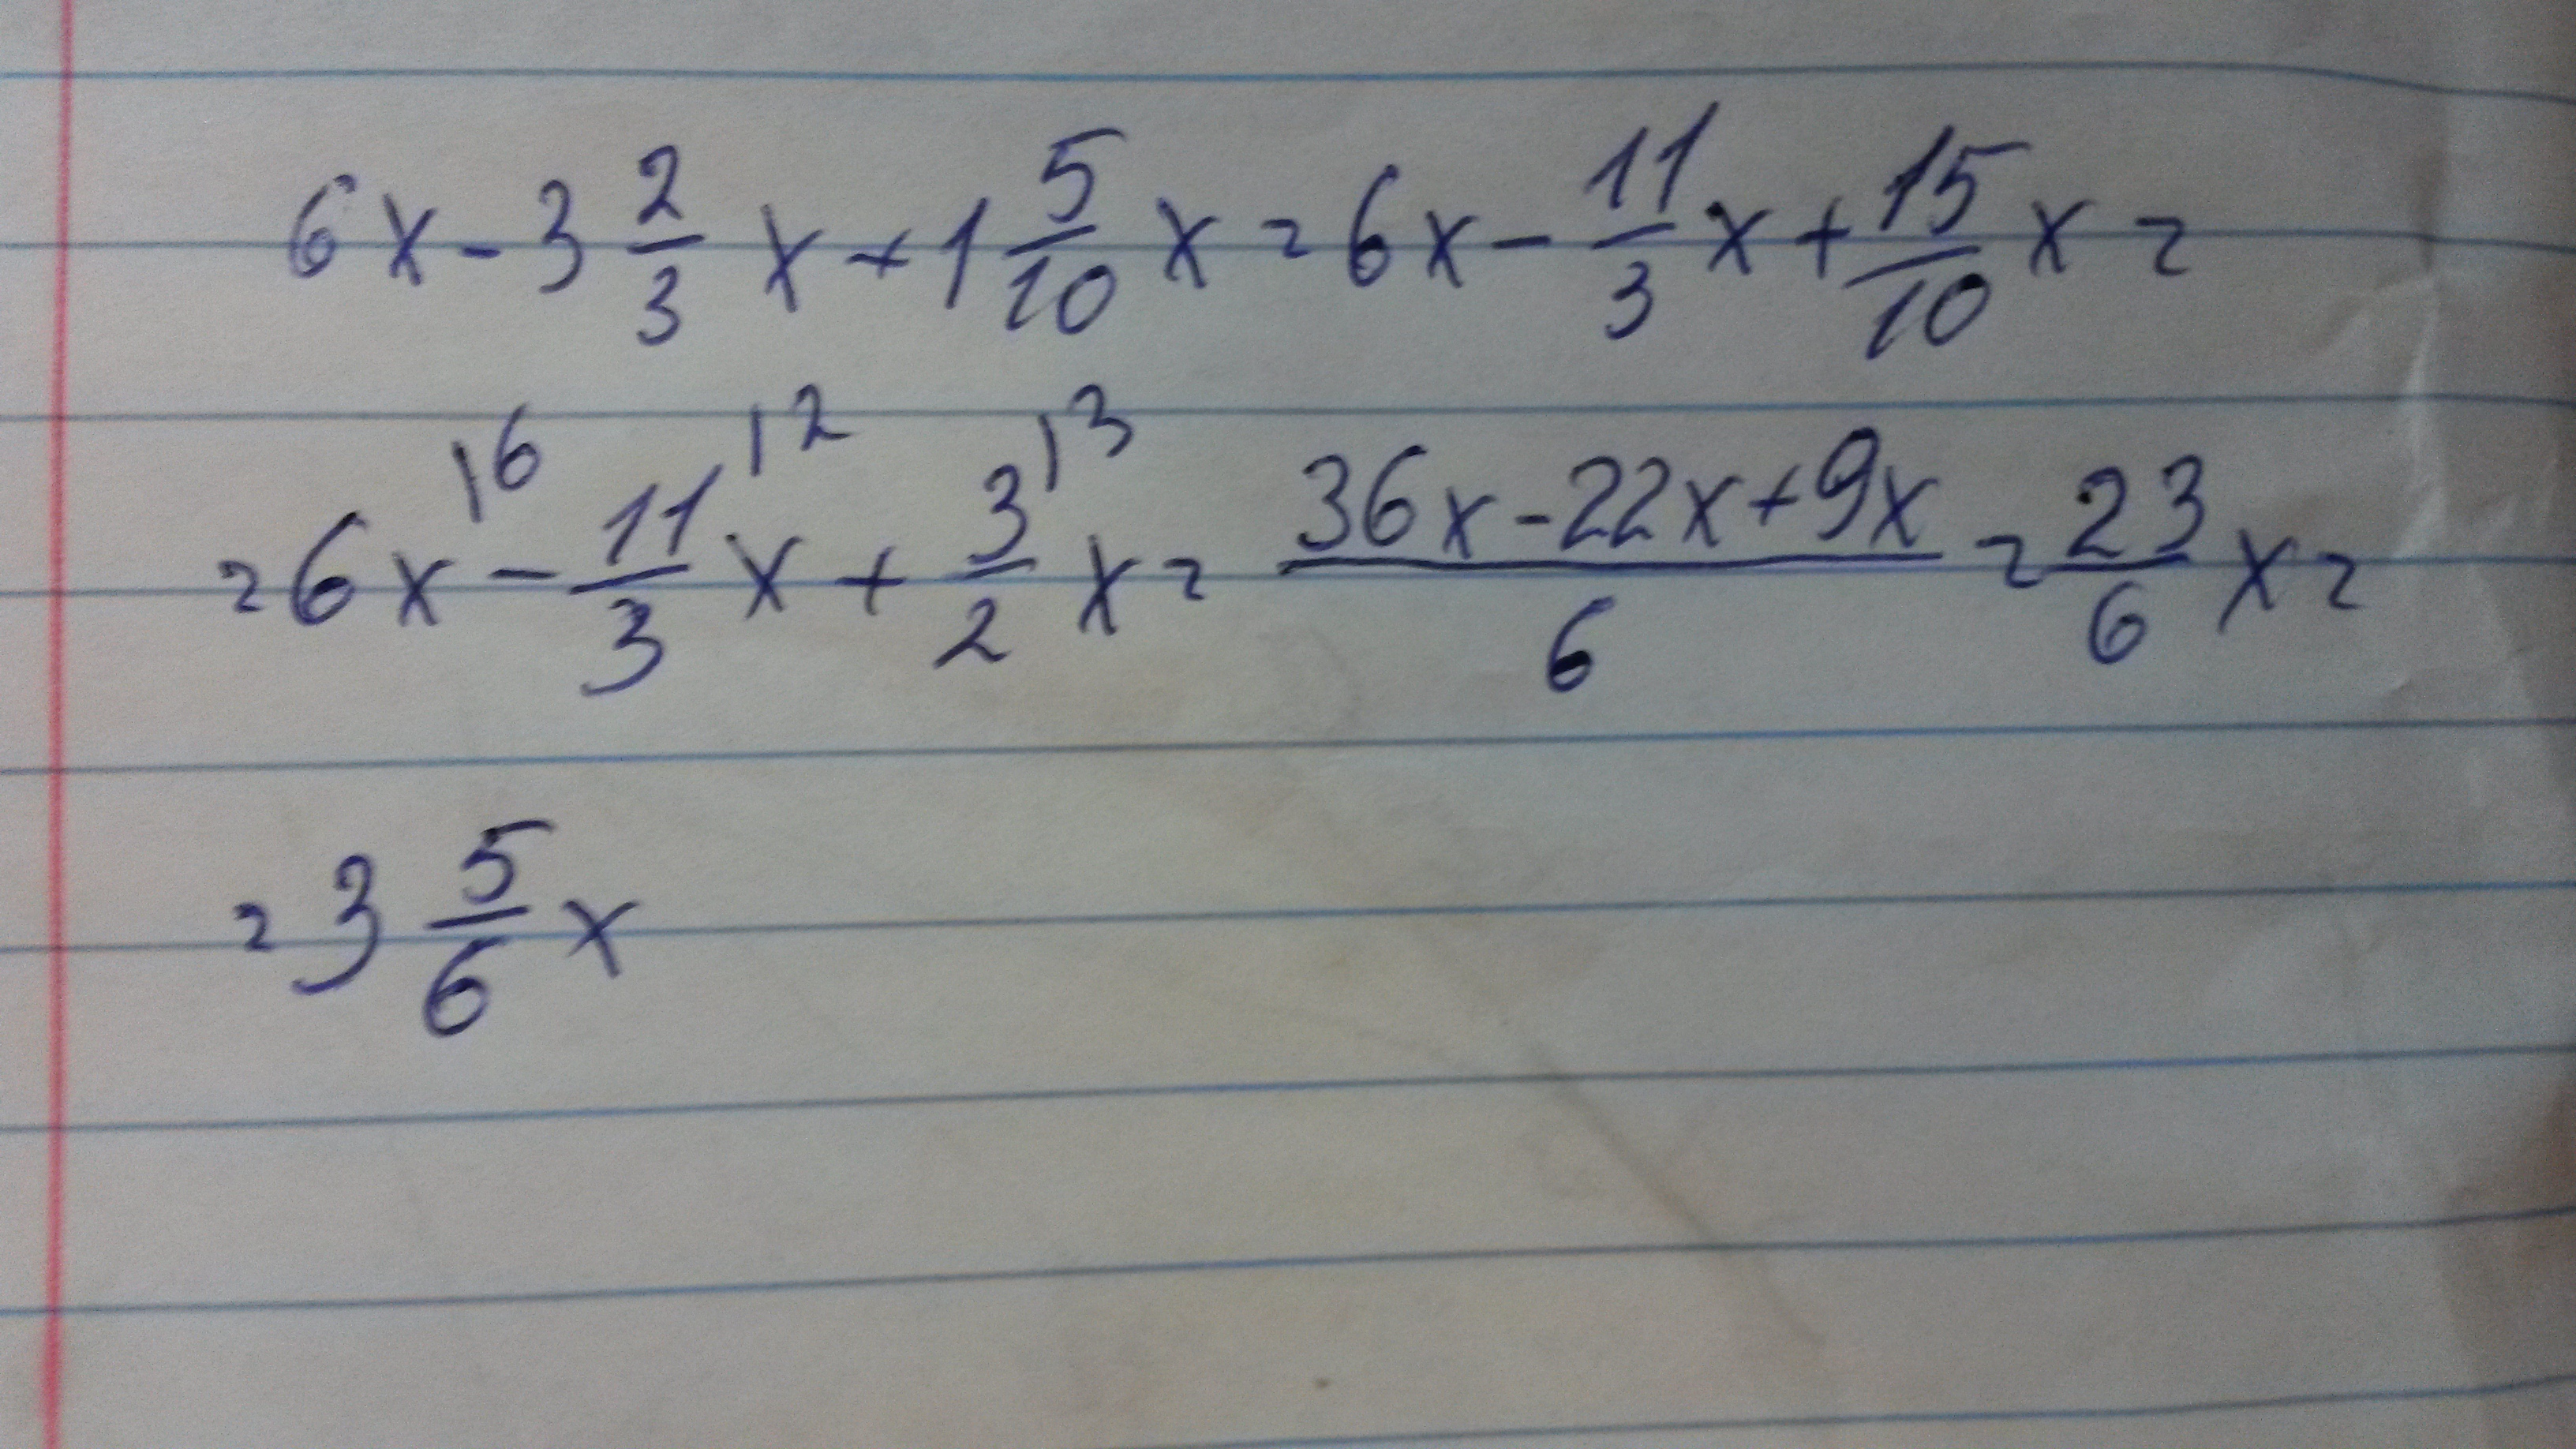 6x - 3 2/3 x + 1 5/10 x = 6x - 11/3 x + 15/10 x =
= 6x^{16} - 11/3^{12} x + 3/2^{13} x = (36x - 22x + 9x)/6 = 23/6 x =
= 3 5/6 x